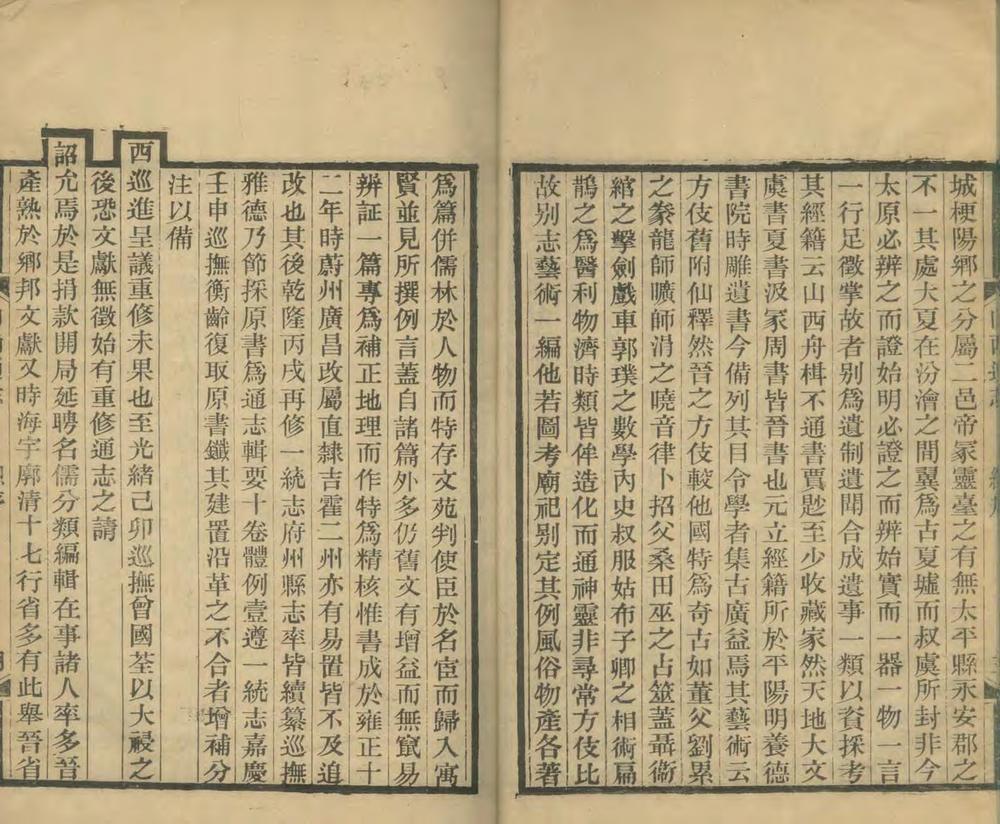 城梗陽鄉之分屬二邑帝冢靈臺之有無太平縣永安郡之
不一其處大夏在汾澮之間翼爲古夏墟而叔虞所封非今
太原必辨之而證始明必證之而辨始實而一器一物一言
一行足徵掌故者别爲遺制遺聞合成遺事一類以資採考
其經籍云山西舟楫不通書賈尟至少收藏家然天地大文
虞書夏書汲冢周書皆晉書也元立經籍所於平陽明養德
書院時雕遺書今備列其目令學者集古廣益焉其藝術云
方伎舊附仙釋然晉之方伎較他國特爲奇古如董父劉累
之豢龍師曠師涓之曉音律卜招父桑田巫之占筮蓋聶衞
綰之擊劍戲車郭璞之數學內史叔服姑布子卿之相術扁
鵲之爲醫利物濟時類皆侔造化而通神靈非尋常方伎比
故别志藝術一編他若圖考廟祀别定其例風俗物產各著
爲篇併儒林於人物而特存文苑判使臣於名宦而歸入寓
賢並見所撰例言蓋自諸篇外多仍舊文有增益而無竄易
辨証一篇專爲補正地理而作特爲精核惟書成於雍正十
二年時蔚州廣昌改屬直隸吉霍二州亦有易置皆不及追
改也其後乾隆丙戌再修一統志府州縣志率皆續纂巡撫
雅德乃節採原書爲通志輯要十卷體例壹遵一統志嘉慶
壬申巡撫衡齡復取原書鐵其建置沿革之不合者增補分
注以備
西巡進呈議重修未果也至光緒己卯巡撫曾國荃以大祲之
後恐文獻無徵始有重修通志之請
詔允焉於是捐款開局延聘名儒分類編輯在事諸人率多晉
產熟於鄉邦文獻又時海宇廓清十七行省多有此舉晉省